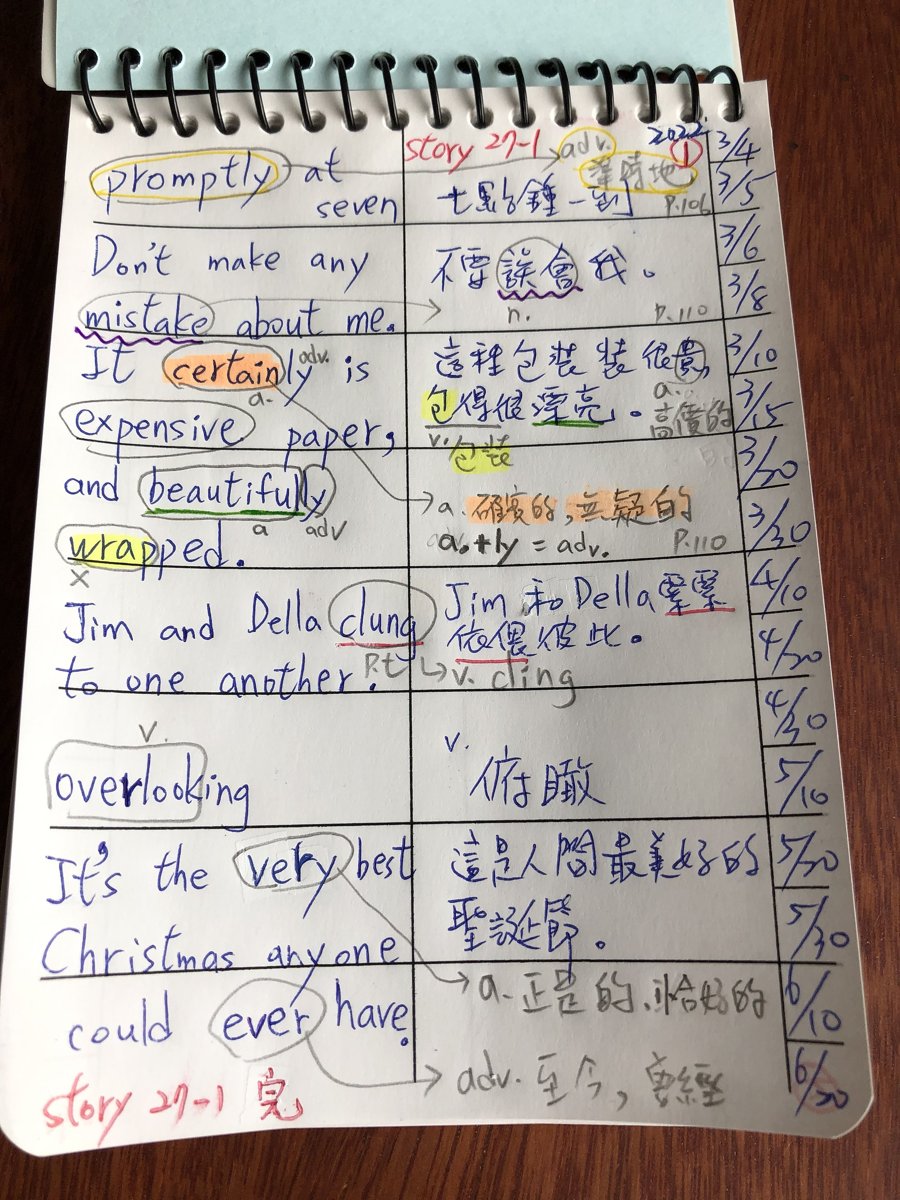 story 27-1 adv. 2022. ①
promptly at 準時地 3/4
seven 七點鐘一到 P.106 3/5
Don't make any 不要誤會我。 3/6
mistake about me. n. P.110 3/8
It certainly is adv. 這種包裝 裝很貴, 3/10
a. 包得很漂亮。 a. 高價的 3/15
expensive paper, v. 包裝 3/20
and beautifully a. 確實的, 無疑的
a adv a.+ly = adv. P.110 3/30
wrapped.
Jim and Della clung Jim 和 Della 緊緊 4/10
依偎彼此。 4/20
to one another. P.t v. cling
v. v. 4/30
overlooking 俯瞰 5/10
It's the very best 這是人間最美好的 5/20
Christmas anyone 聖誕節。 5/30
could ever have. a. 正是的, 恰好的 6/10
adv. 至今, 曾經 6/20
story 27-1 完